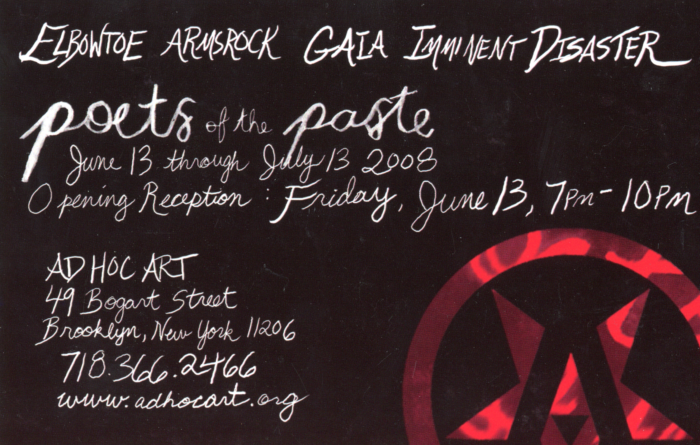 ELBOWTOE ARMSROCK GAIA IMMINENT DISASTER
poets of the paste
June 13 through July 13 2008
Opening Reception : Friday, June 13, 7PM - 10PM
AD HOC ART
49 Bogart Street
Brooklyn, New York 11206
718.366.2466
www.adhocart.org